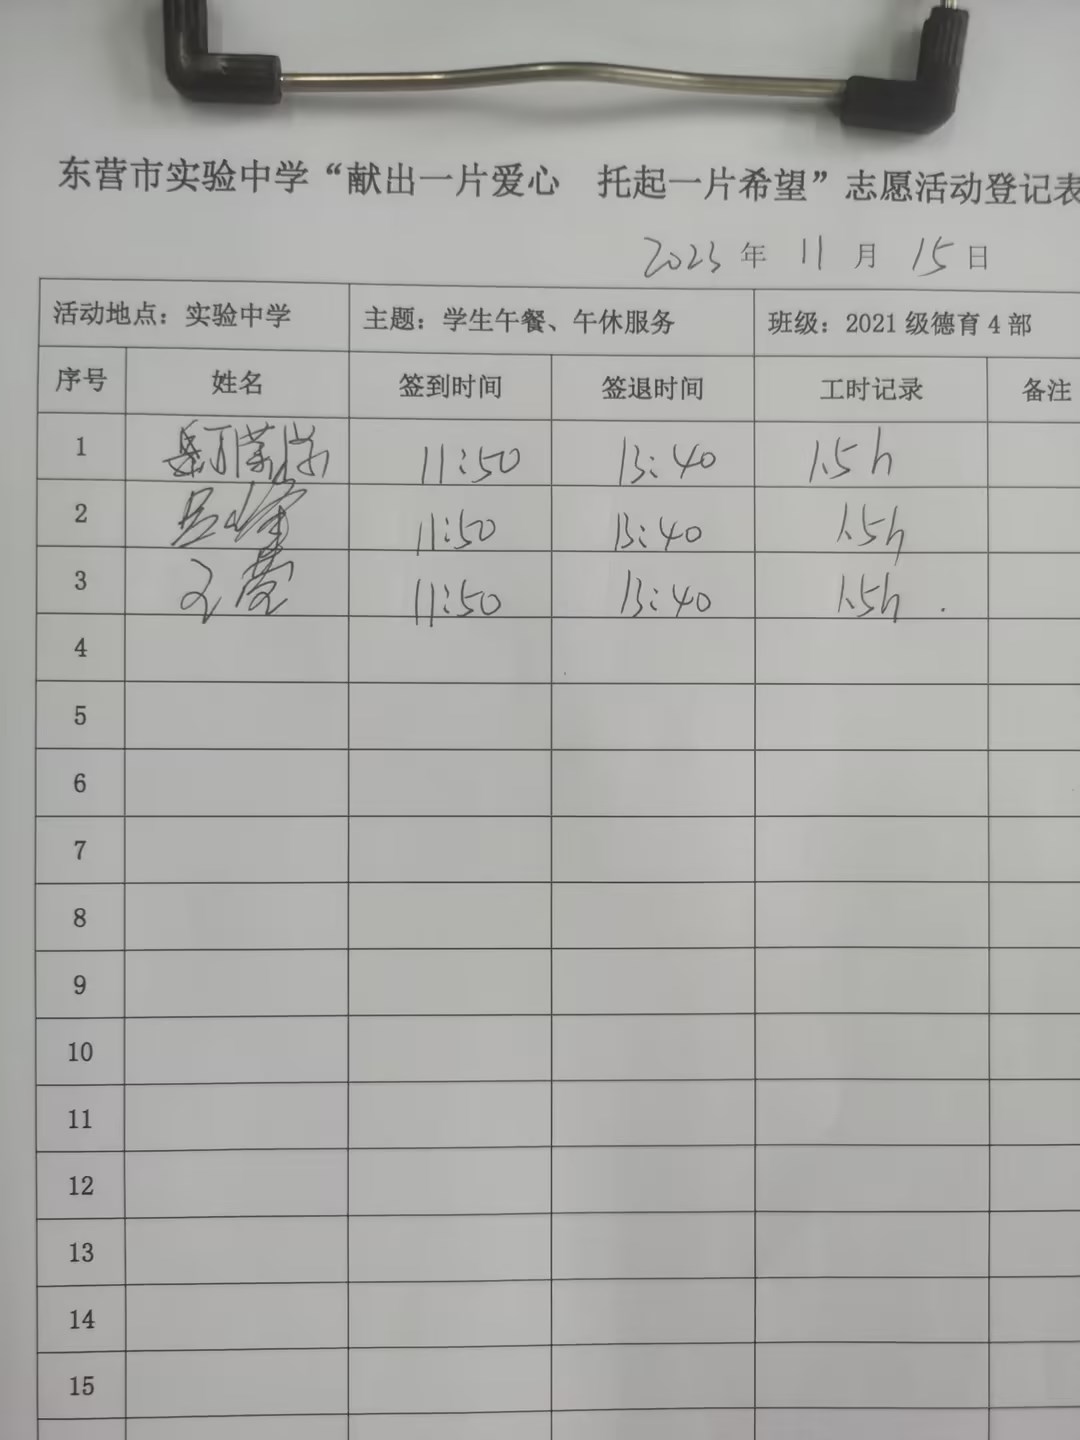 东营市实验中学“献出一片爱心 托起一片希望”志愿活动登记表
2023 年 11 月 15 日
活动地点：实验中学 主题：学生午餐、午休服务 班级：2021 级德育 4 部
序号 姓名 签到时间 签退时间 工时记录 备注
1 11:50 13:40 1.5h
2 11:50 13:40 1.5h
3 11:50 13:40 1.5h
4
5
6
7
8
9
10
11
12
13
14
15